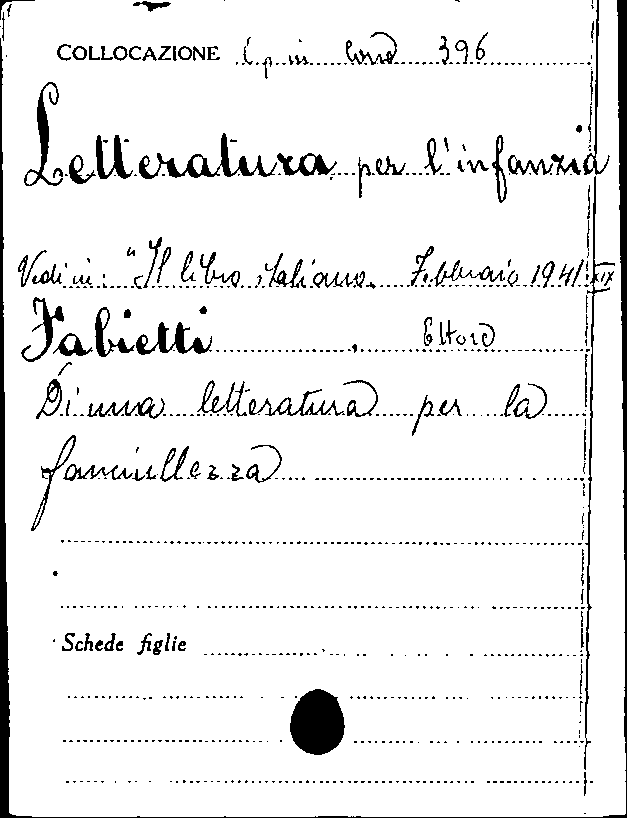 COLLOCAZIONE in 396
Letteratura per l'infanzia
Vedi in: "Il libro italiano. Febbraio 1941 XIX
Fabietti, Ettore
Di una letteratura per la
fanciullezza
Schede figlie